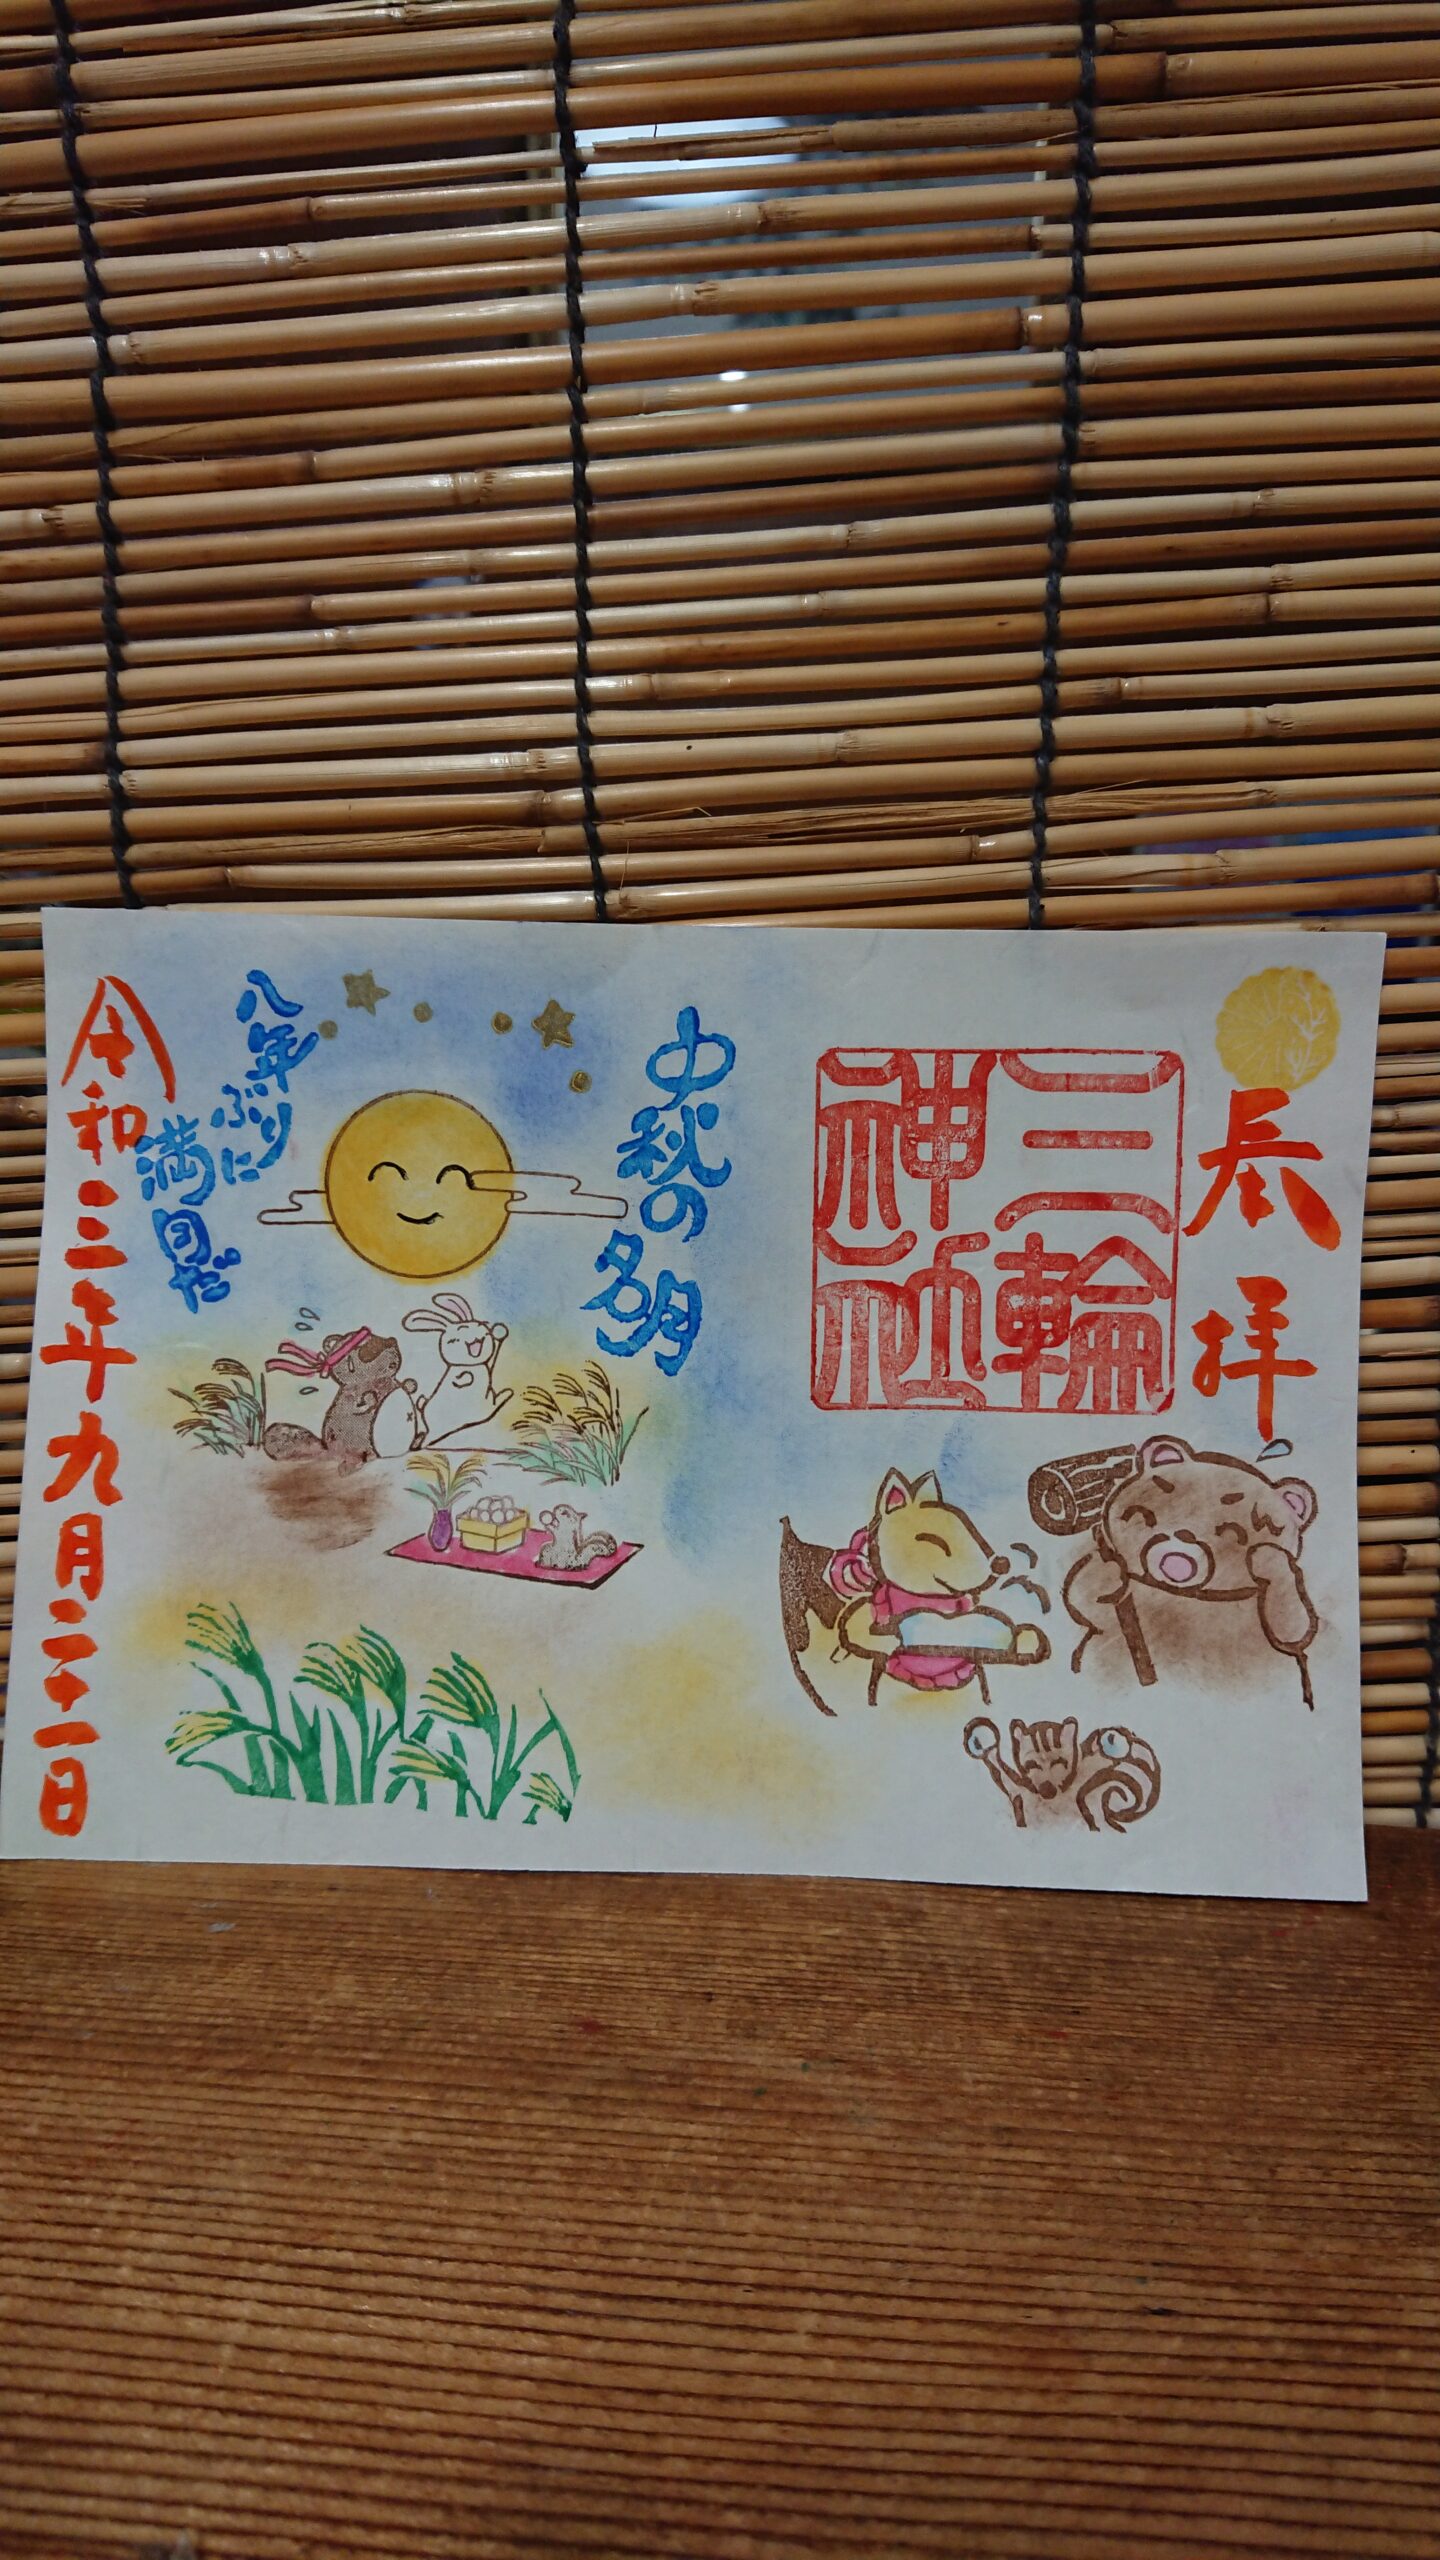 奉拝
三輪
神社
中秋の名月
八年
ぶりに
満月だ
令和三年九月二十一日